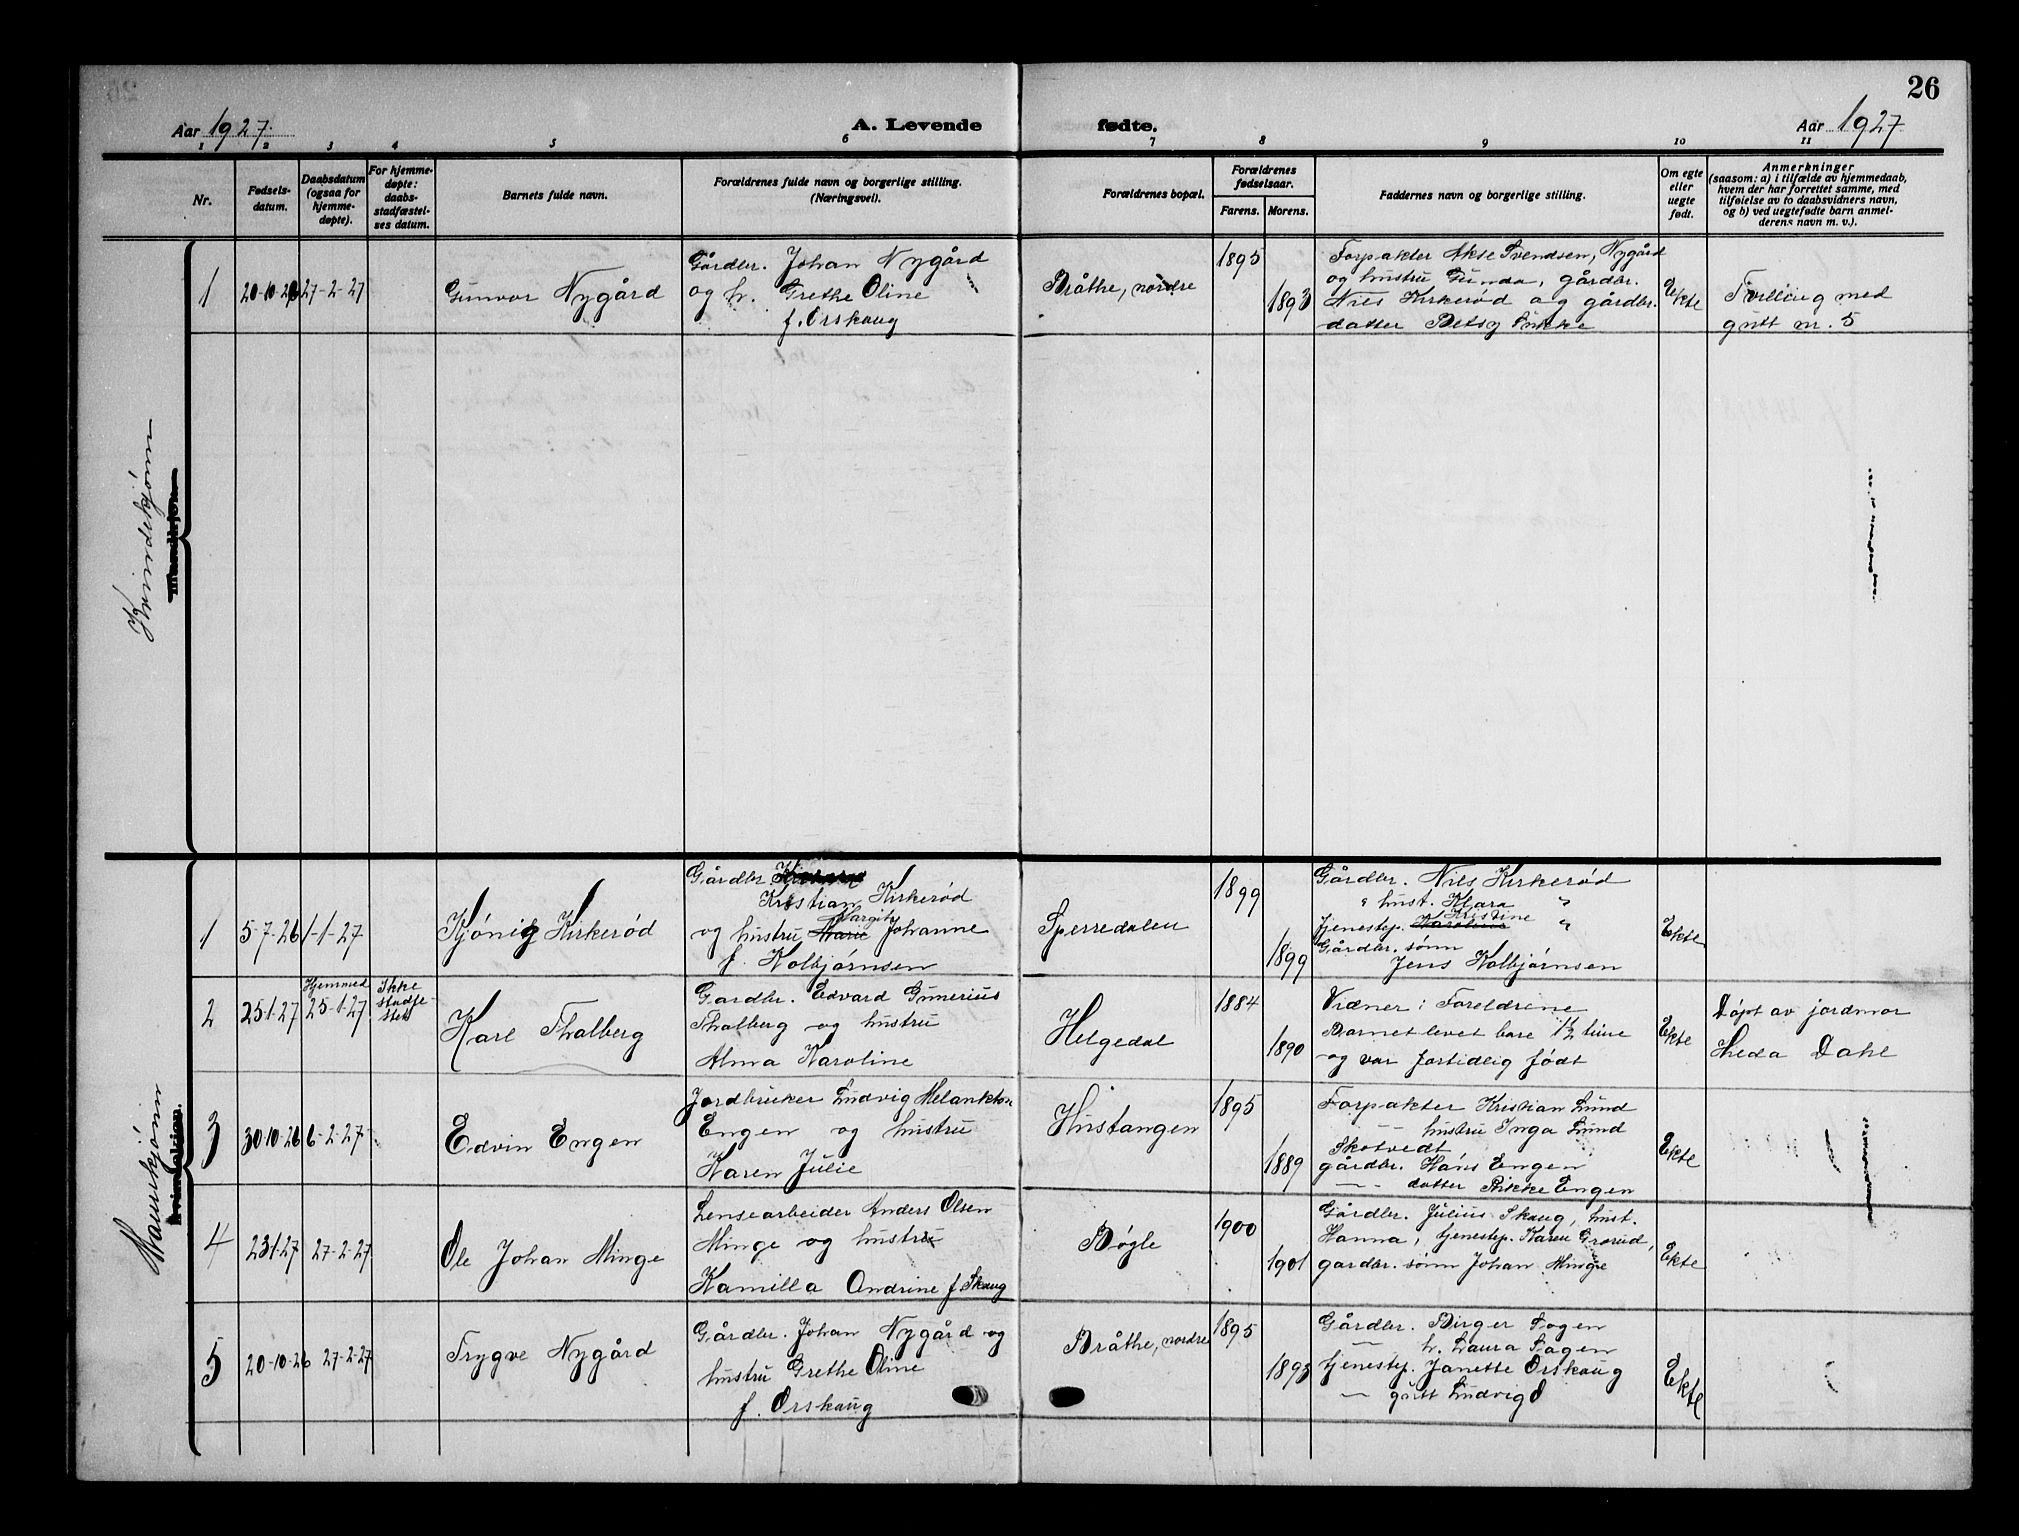 26
Aar 1927.
A. Levende fødte.
Aar 1927
1 2 3 4 5 6 7 8 9 10 11
Nr.
Fødsels-
datum.
Daabsdatum
(ogsaa for
hjemme-
døpte).
For hjemme-
døpte:
daabs-
stadfæstel-
ses datum.
Barnets fulde navn.
Forældrenes fulde navn og borgerlige stilling.
(Næringsvei).
Forældrenes bopæl.
Forældrenes
fødselsaar.
Farens. Morens.
Faddernes navn og borgerlige stilling.
Om egte
eller
uegte
født.
Anmerkninger
(saasom: a) i tilfælde av hjemmedaab,
hvem der har forrettet samme, med
tilføielse av to daabsvidners navn,
og b) ved uegtefødte barn anmel-
derens navn m. v.).
Kvindekjøn
1
20-10-26
27-2-27
Gunvor Nygård
Gårdbr. Johan Nygård
og h. Grethe Oline
f. Orskaug
Bråthe, nordre
1895
1893
Forpakter Akse Svendsen, Nygård
og hustru Gunda, gårdbr.
Niels Kirkerød og gårdbr.
datter Betsy
Ekte
Tvilling med
gutt nr. 5
Mannkjønn
1
5-7-26
1-1-27
Kjönig Kirkerød
Gårdbr.
Kristian Kirkerød
Margit
og hustru Marie Johanne
f. Kolbjørnsen
Sperredalen
1899
1899
Gårdbr. Nils Kirkerød
" hust. Klara "
Kristine
tjenestep. Karoline "
Gårdbr. sønn
Jens Kolbjørnsen
Ekte
2
25-1-27
Hjemmed
25-1-27
Ikke
stadfe-
stet
Karl Thalberg
Gardbr. Edvard Gunerius
Thalberg og hustru
Alma Karoline
Helgedal
1884
1890
Vidner: Foreldrene
Barnet levet bare 1½ time
og var fortidlig født
Ekte
Døpt av jordmor
Heda Dahl
3
30-10-26
6-2-27
Edvin Engen
Jordbruker Ludvig Melankton
Engen og hustru
Karen Julie
Hustangen
1895
1889
Forpakter Kristian Lund
— hustru Inga Lund
Skotvedt
gårdbr. Hans Engen
— datter Rikke Engen
Ekte
4
23-1-27
27-2-27
Ole Johan Minge
Lensearbeider Anders Olsen
Minge og hustru
Kamilla Andrine f Skaug
Bøgle
1900
1901
Gårdbr. Julius Skaug, hust.
Hanna, tjenestep. Karen Grorud,
gardbr. sønn Johan Minge
Ekte
5
20-10-26
27-2-27
Trygve Nygård
Gårdbr. Johan Nygård og
hustru Grethe Oline
f. Orskaug
Bråthe, nordre
1895
1893
Gårdbr. Birger Fagen
— h. Laura Fagen
tjenestep. Janette Orskaug
— gutt Ludvig O
Ekte